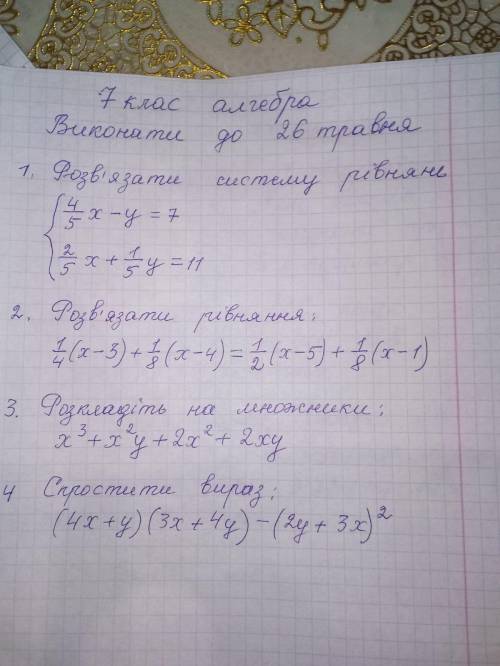 7 клас алгебра
Виконати до 26 травня
1. Розв'язати систему рівнянь
{ 4/5 x - y = 7
2/5 x + 1/5 y = 11
2. Розв'язати рівняння:
1/4 (x-3) + 1/8 (x-4) = 1/2 (x-5) + 1/8 (x-1)
3. Розкладіть на множники:
x³ + x²y + 2x² + 2xy
4 Спростити вираз:
(4x+y)(3x+4y) - (2y+3x)²